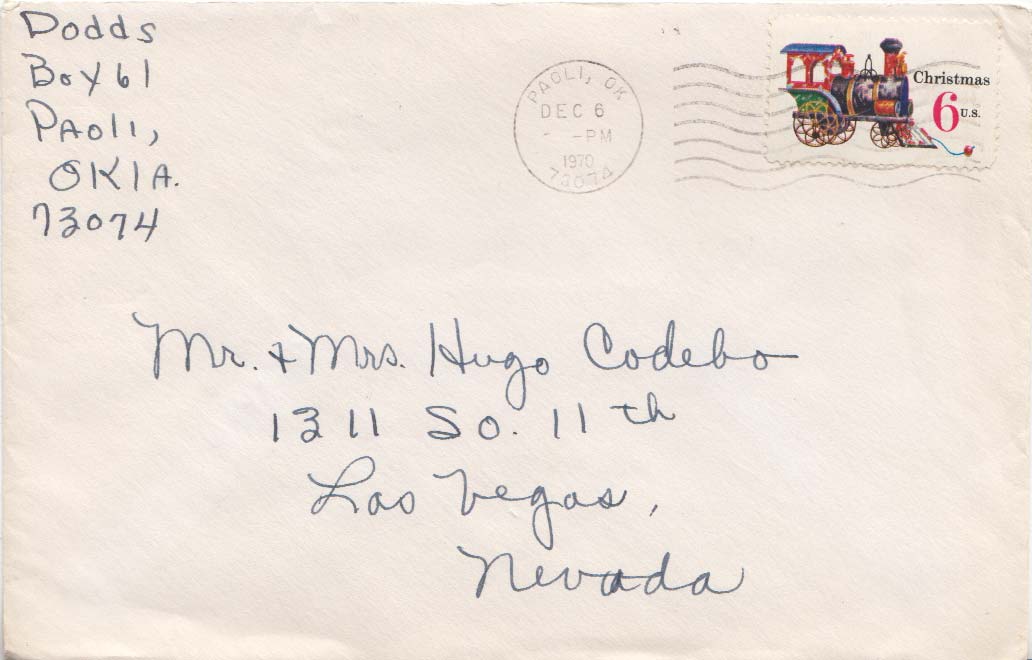 Dodds
Box 61
Paoli,
Okla.
73074
PAOLI, OK
DEC 6
-PM
1970
73074
Christmas
6 U.S.
Mr. + Mrs. Hugo Codebo
1311 So. 11th
Las Vegas,
Nevada